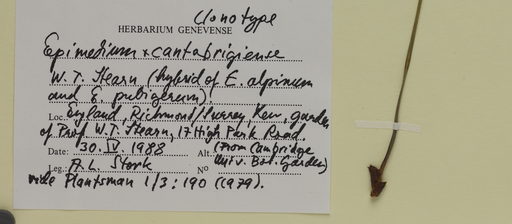 Clonotype
HERBARIUM GENEVENSE
Epimedium x cantabrigiense
W. T. Stearn (hybrid of E. alpinum
and E. pubigerum)
Loc. England, Richmond/Surrey, Kew, garden
of Prof W.T. Stearn, 17 High Park Road.
Date: 30. IV. 1988 Alt. (From Cambridge
Leg.: A.L. Stork No Univ. Bot. Garden)
vide Plantsman 1/3: 190 (1979).